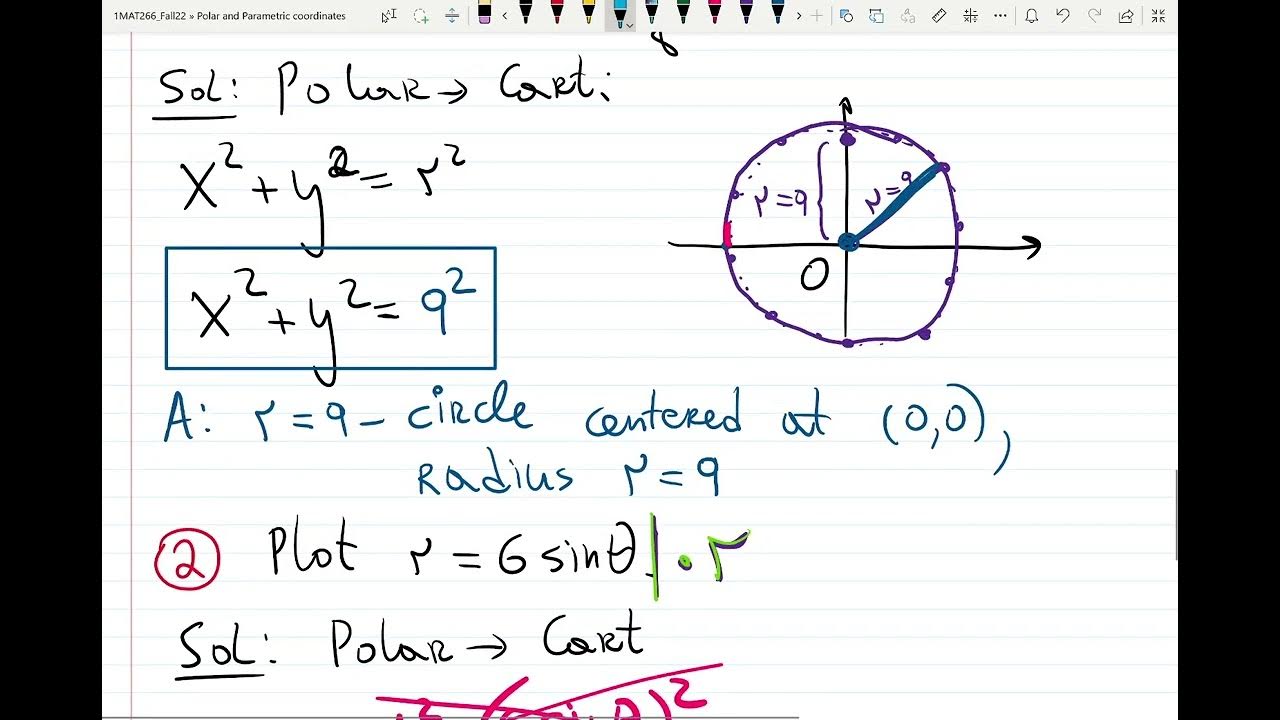 1MAT266_Fall22 » Polar and Parametric coordinates
Sol: Polar → Cart:
x² + y² = r²
x² + y² = 9²
r = 9
r = 9
O
A: r = 9 – circle centered at (0,0),
radius r = 9
② Plot r = 6 sinθ | · r
Sol: Polar → Cart